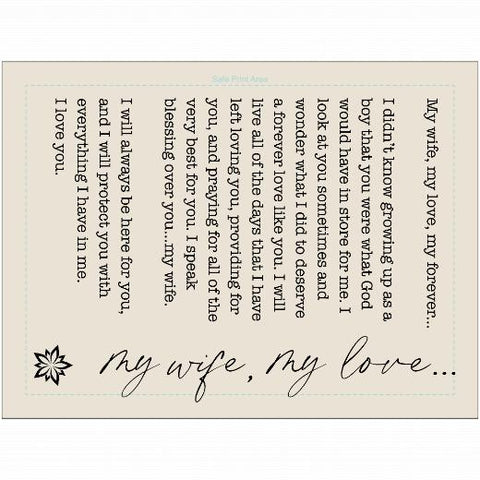 Safe Print Area
My wife, my love, my forever...
I didn't know growing up as a
boy that you were what God
would have in store for me. I
look at you sometimes and
wonder what I did to deserve
a forever love like you. I will
live all of the days that I have
left loving you, providing for
you, and praying for all of the
very best for you. I speak
blessing over you...my wife.
I will always be here for you,
and I will protect you with
everything I have in me.
I love you.
my wife, my love...